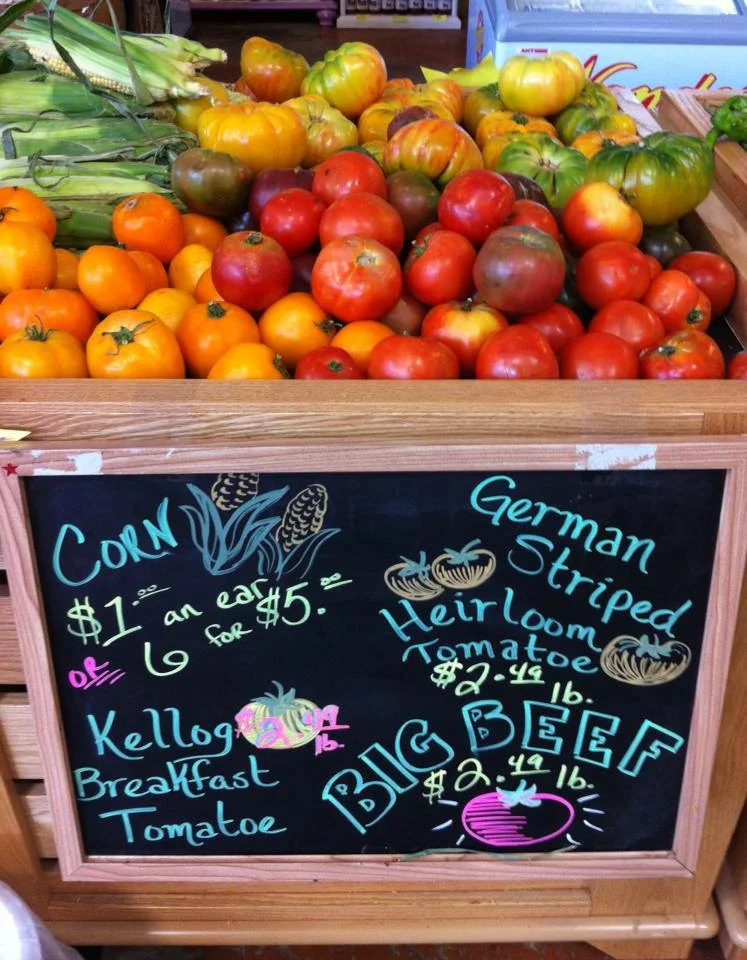 CORN
$1.00 an ear
OR 6 for $5.00
German
Striped
Heirloom
Tomatoe
$2.49 lb.
Kellog
$2.49 lb.
Breakfast
Tomatoe
BIG BEEF
$2.49 lb.